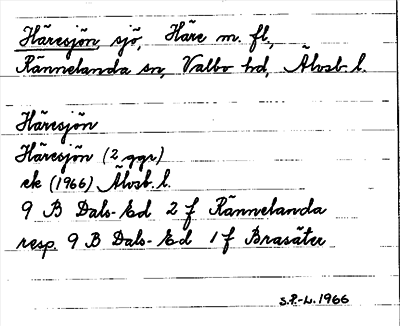 Häresjön, sjö, Häre m. fl.,
Rännelanda sn, Valbo hd, Älvsb. l.
Häresjön
Häresjön (2 ggr)
ek (1966) Älvsb. l.
9 B Dals-Ed 2 f Rännelanda
resp. 9 B Dals-Ed 1 f Brasäter
S.P.-L. 1966